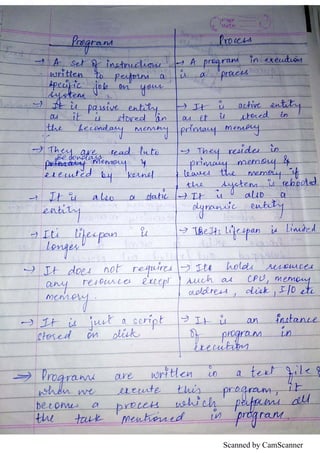 Program
Process
→ A set of instructions
written to perform a
specific job on your
system.
→ A program in execution
is a process
→ It is passive entity
as it is stored in
the secondary memory
→ It is active entity
as it is stored in
primary memory
→ They are read into
secondary
memory &
executed by kernel
→ They resides in
primary memory &
leaves the memory if
the system is rebooted
→ It is also a static
entity
→ It is also a
dynamic entity
→ Its lifespan is
longer
→ Its lifespan is limited
→ It does not requires
any resources except
memory.
→ Its holds resources
such as CPU, memory
address, disk, I/O etc
→ It is just a script
stored on disk
→ It is an instance
of program in
execution
⇒ Programs are written in a text file &
when we execute this program, it
becomes a process which performs all
the task mentioned in program
Scanned by CamScanner